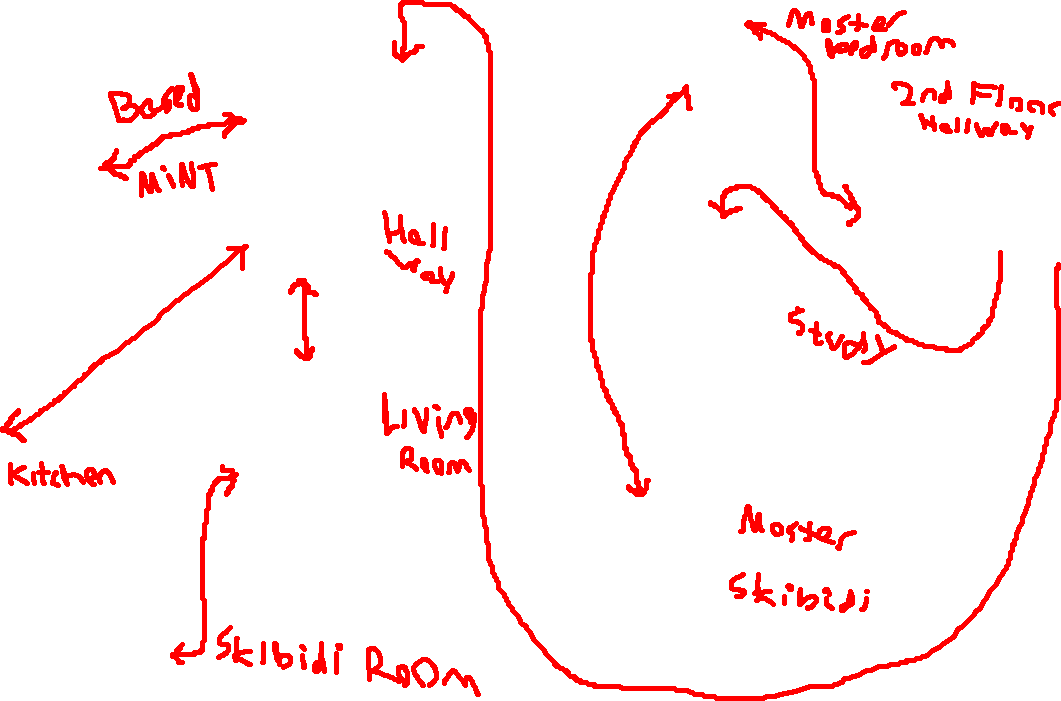 Based
MiNT
Hall
way
Kitchen
Living
Room
Skibidi Room
Master
bedroom
2nd Floor
Hallway
Study
Master
Skibidi